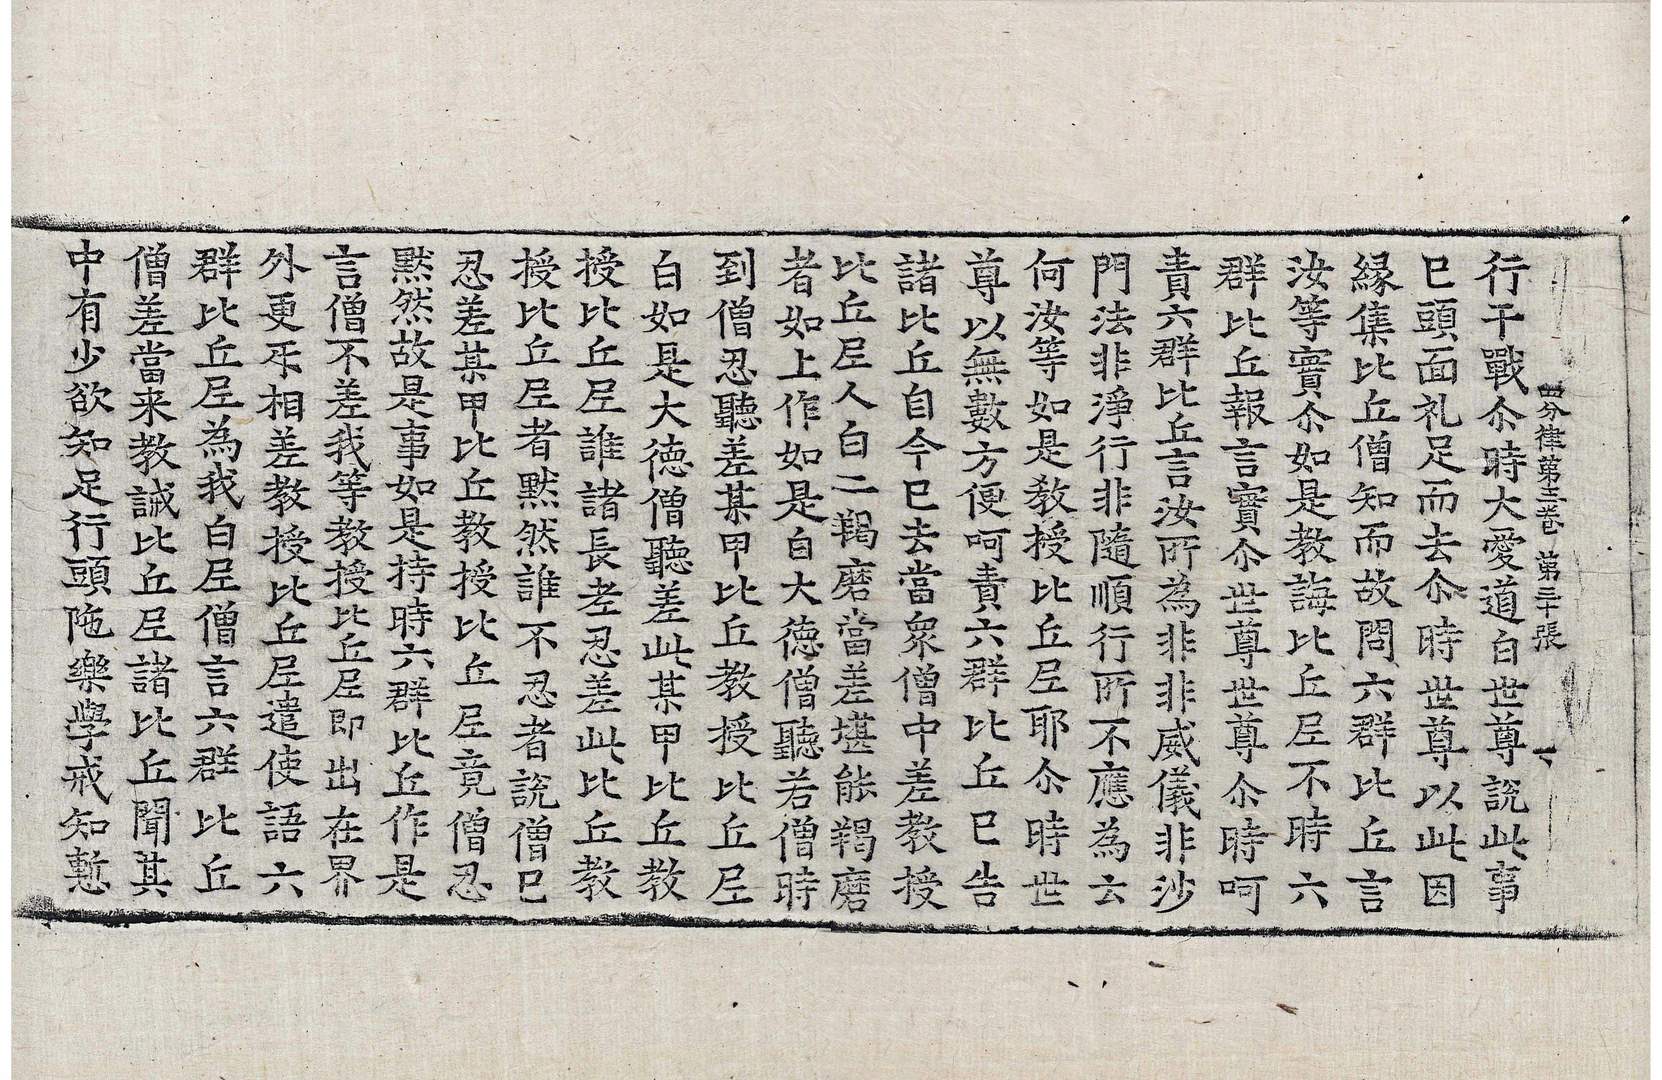 四分律第三卷 第三十張
行干戰尒時大愛道白世尊說此事
已頭面礼足而去尒時世尊以此因
緣集比丘僧知而故問六群比丘言
汝等實尒如是教誨比丘尼不時六
群比丘報言實尒世尊世尊尒時呵
責六群比丘言汝所為非非威儀非沙
門法非淨行非隨順行所不應為云
何汝等如是教授比丘尼耶尒時世
尊以無數方便呵責六群比丘已告
諸比丘自今已去當衆僧中差教授
比丘尼人白二羯磨當差堪能羯磨
者如上作如是白大德僧聽若僧時
到僧忍聽差某甲比丘教授比丘尼
白如是大德僧聽差此某甲比丘教
授比丘尼誰諸長老忍差此比丘教
授比丘尼者默然誰不忍者說僧已
忍差某甲比丘教授比丘尼竟僧忍
默然故是事如是持時六群比丘作是
言僧不差我等教授比丘尼即出在界
外更互相差教授比丘尼遣使語六
群比丘尼為我白尼僧言六群比丘
僧差當来教誡比丘尼諸比丘聞其
中有少欲知足行頭陁樂學戒知慙